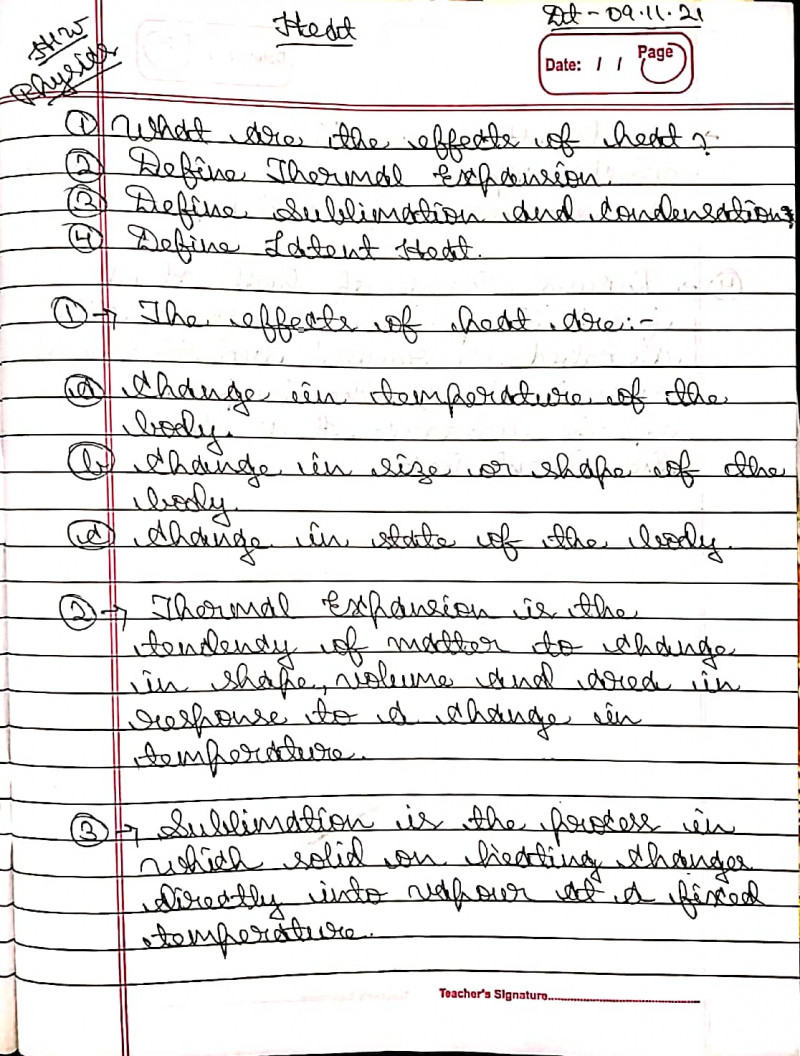 H.W
Physics
Heat
Dt - 09.11.21
Date: / / Page
① What are the effects of heat?
② Define Thermal Expansion.
③ Define Sublimation and Condensation.
④ Define Latent Heat.
① → The effects of heat are:-
ⓐ Change in temperature of the
body.
ⓑ Change in size or shape of the
body.
ⓒ Change in state of the body.
② → Thermal Expansion is the
tendency of matter to change
in shape, volume and area in
response to a change in
temperature.
③ → Sublimation is the process in
which solid on heating changes
directly into vapour at a fixed
temperature.
Teacher's Signature